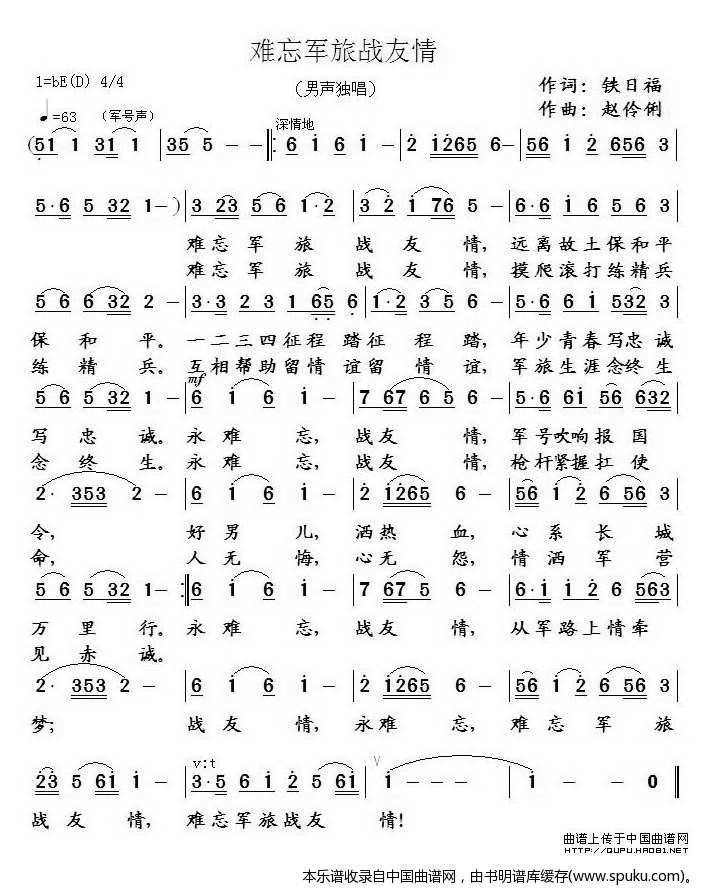 难忘军旅战友情
1=bE(D) 4/4
（男声独唱）
作词：铁日福
♩=63 （军号声）
作曲：赵伶俐
深情地
(51 1 31 1 | 35 5 - - |: 6 1 6 1 - | 2 1265 6- | 56 1 2 656 3 |
5·6 5 32 1-) | 3 23 5 6 1·2 | 3 2 1 76 5 - | 6·6 1 6 5 56 3 |
难忘军旅战友情，远离故土保和平
难忘军旅战友情，摸爬滚打练精兵
5 6 6 32 2 - | 3·3 2 3 1 65 6 | 1·2 3 5 6 - | 5·6 6 1 532 3 |
保和平。一二三四征程踏征程踏，年少青春写忠诚
练精兵。互相帮助留情谊留情谊，军旅生涯念终生
mf
5·6 5 32 1- | 6 1 6 1 - | 7 67 6 5 6 - | 5·6 61 56 632 |
写忠诚。永难忘，战友情，军号吹响报国
念终生。永难忘，战友情，枪杆紧握扛使
2· 353 2 - | 6 1 6 1 - | 2 1265 6- | 56 1 2 656 3 |
令，好男儿，洒热血，心系长城
命，人无悔，心无怨，情洒军营
5 6 5 32 1- :| 6 1 6 1 - | 7 67 5 6 - | 6·1 1 2 6 563 |
万里行。永难忘，战友情，从军路上情牵
见赤诚。
2· 353 2 - | 6 1 6 1 - | 2 1265 6- | 56 1 2 6 56 3 |
梦；战友情，永难忘，难忘军旅
v:t V
23 5 61 1 - | 3·5 6 1 2 5 61 | 1 - - - | 1 - - 0 ||
战友情，难忘军旅战友情！
曲谱上传于中国曲谱网
HTTP://QUPU.HAO81.NET
本乐谱收录自中国曲谱网，由书明谱库缓存(www.spuku.com)。